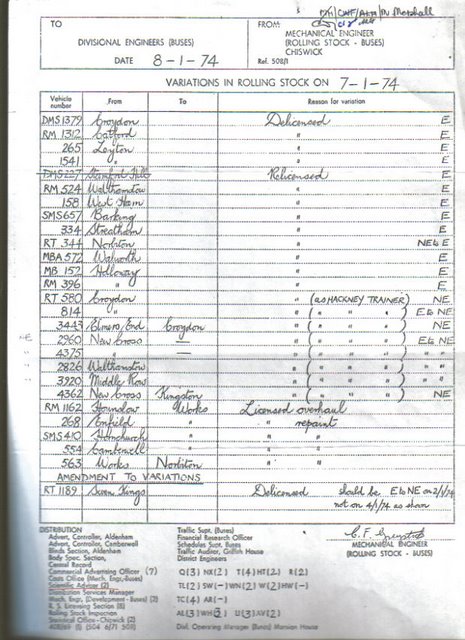 TO
FROM:
DIVISIONAL ENGINEERS (BUSES)
MECHANICAL ENGINEER
(ROLLING STOCK - BUSES)
CHISWICK
DATE 8-1-74
Ref. 508/1
VARIATIONS IN ROLLING STOCK ON 7-1-74
Vehicle number From To Reason for variation
DMS 1379 Croydon Delicensed E
RM 1312 Catford " E
265 Leyton " E
1541 " " E
DMS 227 Stamford Hill Relicensed E
RM 524 Walthamstow " E
158 West Ham " E
SMS 657 Barking " E
334 Streatham " E
RT 344 Norbiton " NE to E
MBA 572 Walworth " E
MB 152 Holloway " E
RM 396 " " E
RT 580 Croydon " (as HACKNEY TRAINER) NE
814 " " ( " " " ) E to NE
3443 Elmers End Croydon " ( " " " ) NE
2960 New Cross — " ( " " " ) E to NE
4375 " — " ( " " " ) " "
2826 Walthamstow " ( " " " ) " "
3920 Middle Row " ( " " " ) " "
4362 New Cross Kingston " ( " " " ) NE
RM 1162 Hounslow Works Licensed overhaul
268 Enfield " " repaint
SMS 410 Hornchurch " " "
554 Camberwell " " "
563 Works Norbiton " "
AMENDMENT TO VARIATIONS
RT 1189 Seven Kings Delicensed should be E to NE on 2/1/74
not on 4/1/74 as shown
DISTRIBUTION
Advert. Controller, Aldenham
Advert. Controller, Camberwell
Blinds Section, Aldenham
Body Spec. Section,
Central Record
Commercial Advertising Officer (7)
Costs Office (Mech. Engr.-Buses)
Scientific Adviser (2)
Distribution Services Manager
Mech. Engr. (Development - Buses) (2)
R. S. Licensing Section (8)
Rolling Stock Inspection
Statistical Office - Chiswick (2)
Traffic Supt. (Buses)
Financial Research Officer
Schedules Supt. Buses
Traffic Auditor, Griffith House
District Engineers
Q(3) NX(2) T(4) HT(2) R(2)
TL(2) SW(-) WN(2) W(2) HW(-)
TC(4) AR(-)
AL(3) WH(2) U(3) AV(2)
Divl. Operating Manager (Buses) Mansion House
MECHANICAL ENGINEER
(ROLLING STOCK - BUSES)